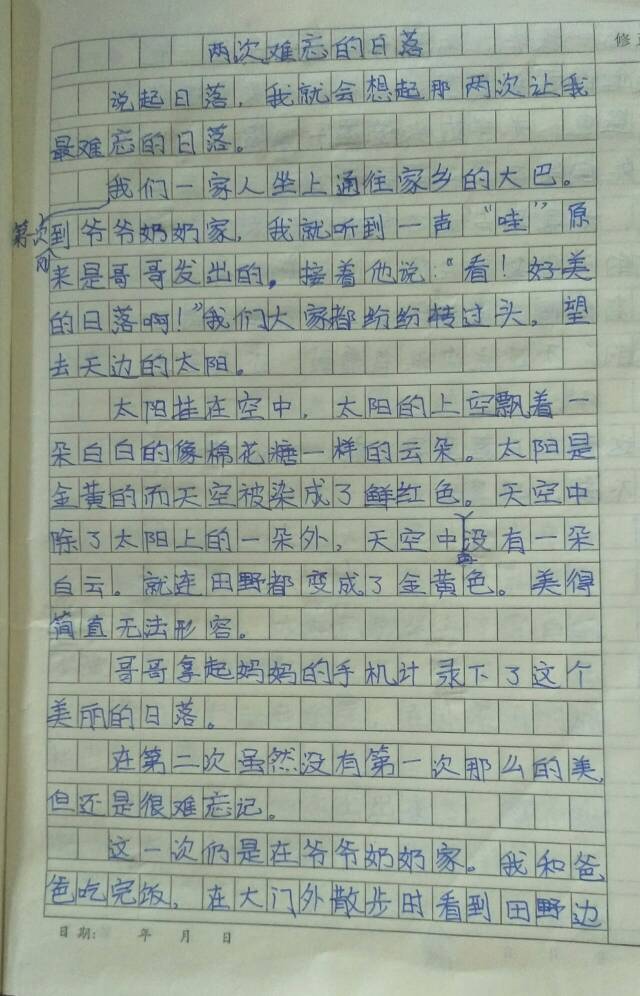 修
两次难忘的日落
说起日落，我就会想起那两次让我
最难忘的日落。
我们一家人坐上通往家乡的大巴。
第 次到爷爷奶奶家，我就听到一声“哇”原
来是哥哥发出的。接着他说：“看！好美
的日落啊！”我们大家都纷纷转过头，望
去天边的太阳。
太阳挂在空中，太阳的上空飘着一
朵白白的像棉花糖一样的云朵。太阳是
金黄的而天空被染成了鲜红色。天空中
除了太阳上的一朵外，天空中没有一朵
白云。就连田野都变成了金黄色。美得
简直无法形容。
哥哥拿起妈妈的手机计录下了这个
美丽的日落。
在第二次虽然没有第一次那么的美，
但还是很难忘记。
这一次仍是在爷爷奶奶家。我和爸
爸吃完饭，在大门外散步时看到田野边
日期： 年 月 日